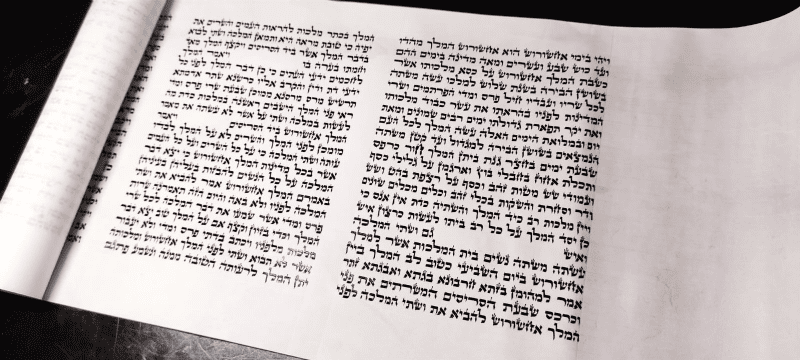 ויהי בימי אחשורוש הוא אחשורוש המלך מהדו
ועד כוש שבע ועשרים ומאה מדינה בימים ההם
כשבת המלך אחשורוש על כסא מלכותו אשר
בשושן הבירה בשנת שלוש למלכו עשה משתה
לכל שריו ועבדיו חיל פרס ומדי הפרתמים ושרי
המדינות לפניו בהראתו את עשר כבוד מלכותו
ואת יקר תפארת גדולתו ימים רבים שמונים ומאת
יום ובמלואת הימים האלה עשה המלך לכל העם
הנמצאים בשושן הבירה למגדול ועד קטן משתה
שבעת ימים בחצר גנת ביתן המלך חור כרפס
ותכלת אחוז בחבלי בוץ וארגמן על גלילי כסף
ועמודי שש מטות זהב וכסף על רצפת בהט ושש
ודר וסחרת והשקות בכלי זהב וכלים מכלים שונים
ויין מלכות רב כיד המלך והשתיה כדת אין אנס כי
כן יסד המלך על כל רב ביתו לעשות כרצון איש
ואיש גם ושתי המלכה
עשתה משתה נשים בית המלכות אשר למלך
אחשורוש ביום השביעי כטוב לב המלך ביין
אמר למהומן בזתא חרבונא בגתא ואבגתא זתר
וכרכס שבעת הסריסים המשרתים את פני
המלך אחשורוש להביא את ושתי המלכה לפני
המלך בכתר מלכות להראות העמים והשרים את
יפיה כי טובת מראה היא ותמאן המלכה ושתי לבוא
בדבר המלך אשר ביד הסריסים ויקצף המלך מאד
וחמתו בערה בו ויאמר המלך
לחכמים ידעי העתים כי כן דבר המלך לפני כל
ידעי דת ודין והקרב אליו כרשנא שתר אדמתא
תרשיש מרס מרסנא ממוכן שבעת שרי פרס ומדי
ראי פני המלך הישבים ראשנה במלכות כדת מה
לעשות במלכה ושתי על אשר לא עשתה את מאמר
המלך אחשורוש ביד הסריסים ויאמר
מומכן לפני המלך והשרים לא על המלך לבדו
עותה ושתי המלכה כי על כל השרים ועל כל העמים
אשר בכל מדינות המלך אחשורוש כי יצא דבר
המלכה על כל הנשים להבזות בעליהן בעיניהן
באמרם המלך אחשורוש אמר להביא את ושתי
המלכה לפניו ולא באה והיום הזה תאמרנה שרות
פרס ומדי אשר שמעו את דבר המלכה לכל שרי
המלך וכדי בזיון וקצף אם על המלך טוב יצא דבר
מלכות מלפניו ויכתב בדתי פרס ומדי ולא יעבור
אשר לא תבוא ושתי לפני המלך אחשורוש ומלכותה
יתן המלך לרעותה הטובה ממנה ונשמע פתגם